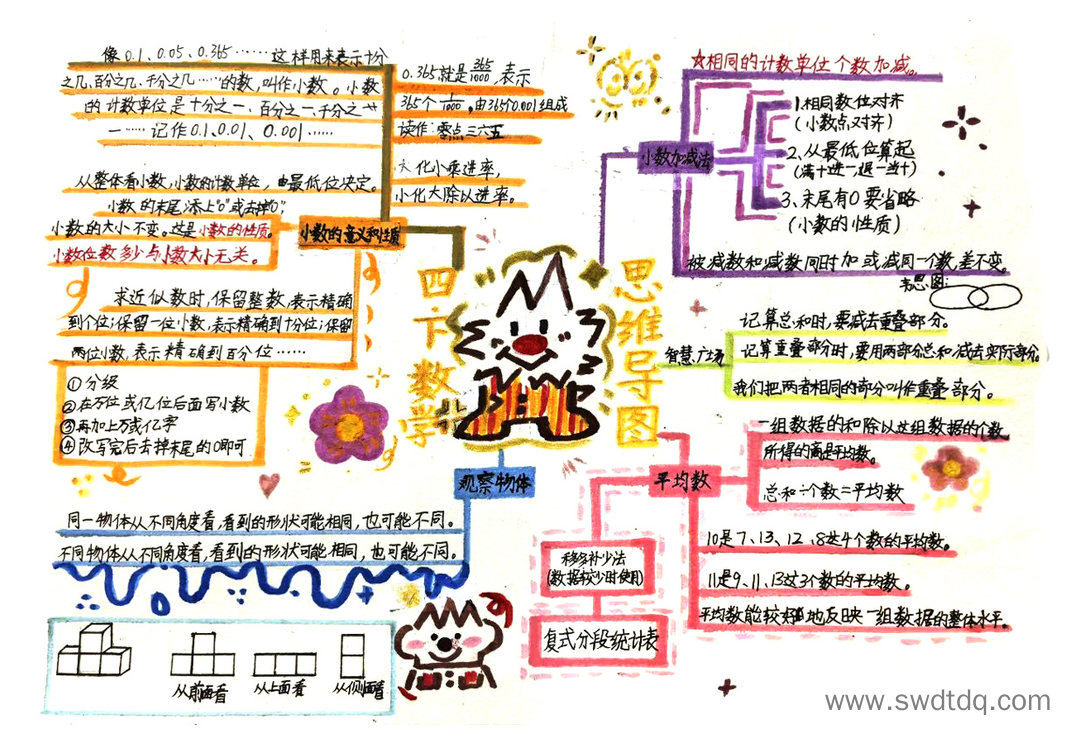 像0.1、0.05、0.365……这样用来表示十分
之几、百分之几、千分之几……的数,叫作小数。小数
的计数单位是十分之一、百分之一、千分之
一……记作0.1、0.01、0.001……
0.365就是365/1000,表示
365个1/1000,由365个0.001组成
读作:零点三六五
大化小乘进率,
小化大除以进率。
从整体看小数,小数的计数单位,由最低位决定。
小数的末尾添上"0"或去掉"0",
小数的大小不变。这是小数的性质。
小数位数多少与小数大小无关。
小数的意义和性质
求近似数时,保留整数,表示精确
到个位;保留一位小数,表示精确到十分位;保留
两位小数,表示精确到百分位……
①分级
②在万位或亿位后面写小数
③再加上万或亿字
④改写完后去掉末尾的0即可
四下数学
思维导图
☆相同的计数单位个数加减。
小数加减法
1.相同数位对齐
(小数点对齐)
2、从最低位算起
(满十进一退一当十)
3、末尾有0要省略
(小数的性质)
被减数和减数同时加或减同一个数,差不变。
韦恩图:
智慧广场
记算总和时,要减去重叠部分。
记算重叠部分时,要用两部分总和减去实际部分。
我们把两者相同的部分叫作重叠部分。
观察物体
同一物体从不同角度看,看到的形状可能相同,也可能不同。
不同物体从不同角度看,看到的形状可能相同,也可能不同。
从前面看
从上面看
从侧面看
平均数
一组数据的和除以这组数据的个数
所得的商是平均数。
总和÷个数=平均数
10是7、13、12、8这4个数的平均数。
11是9、11、13这3个数的平均数。
平均数能较好地反映一组数据的整体水平。
移多补少法
(数据较少时使用)
复式分段统计表
www.swdtdq.com